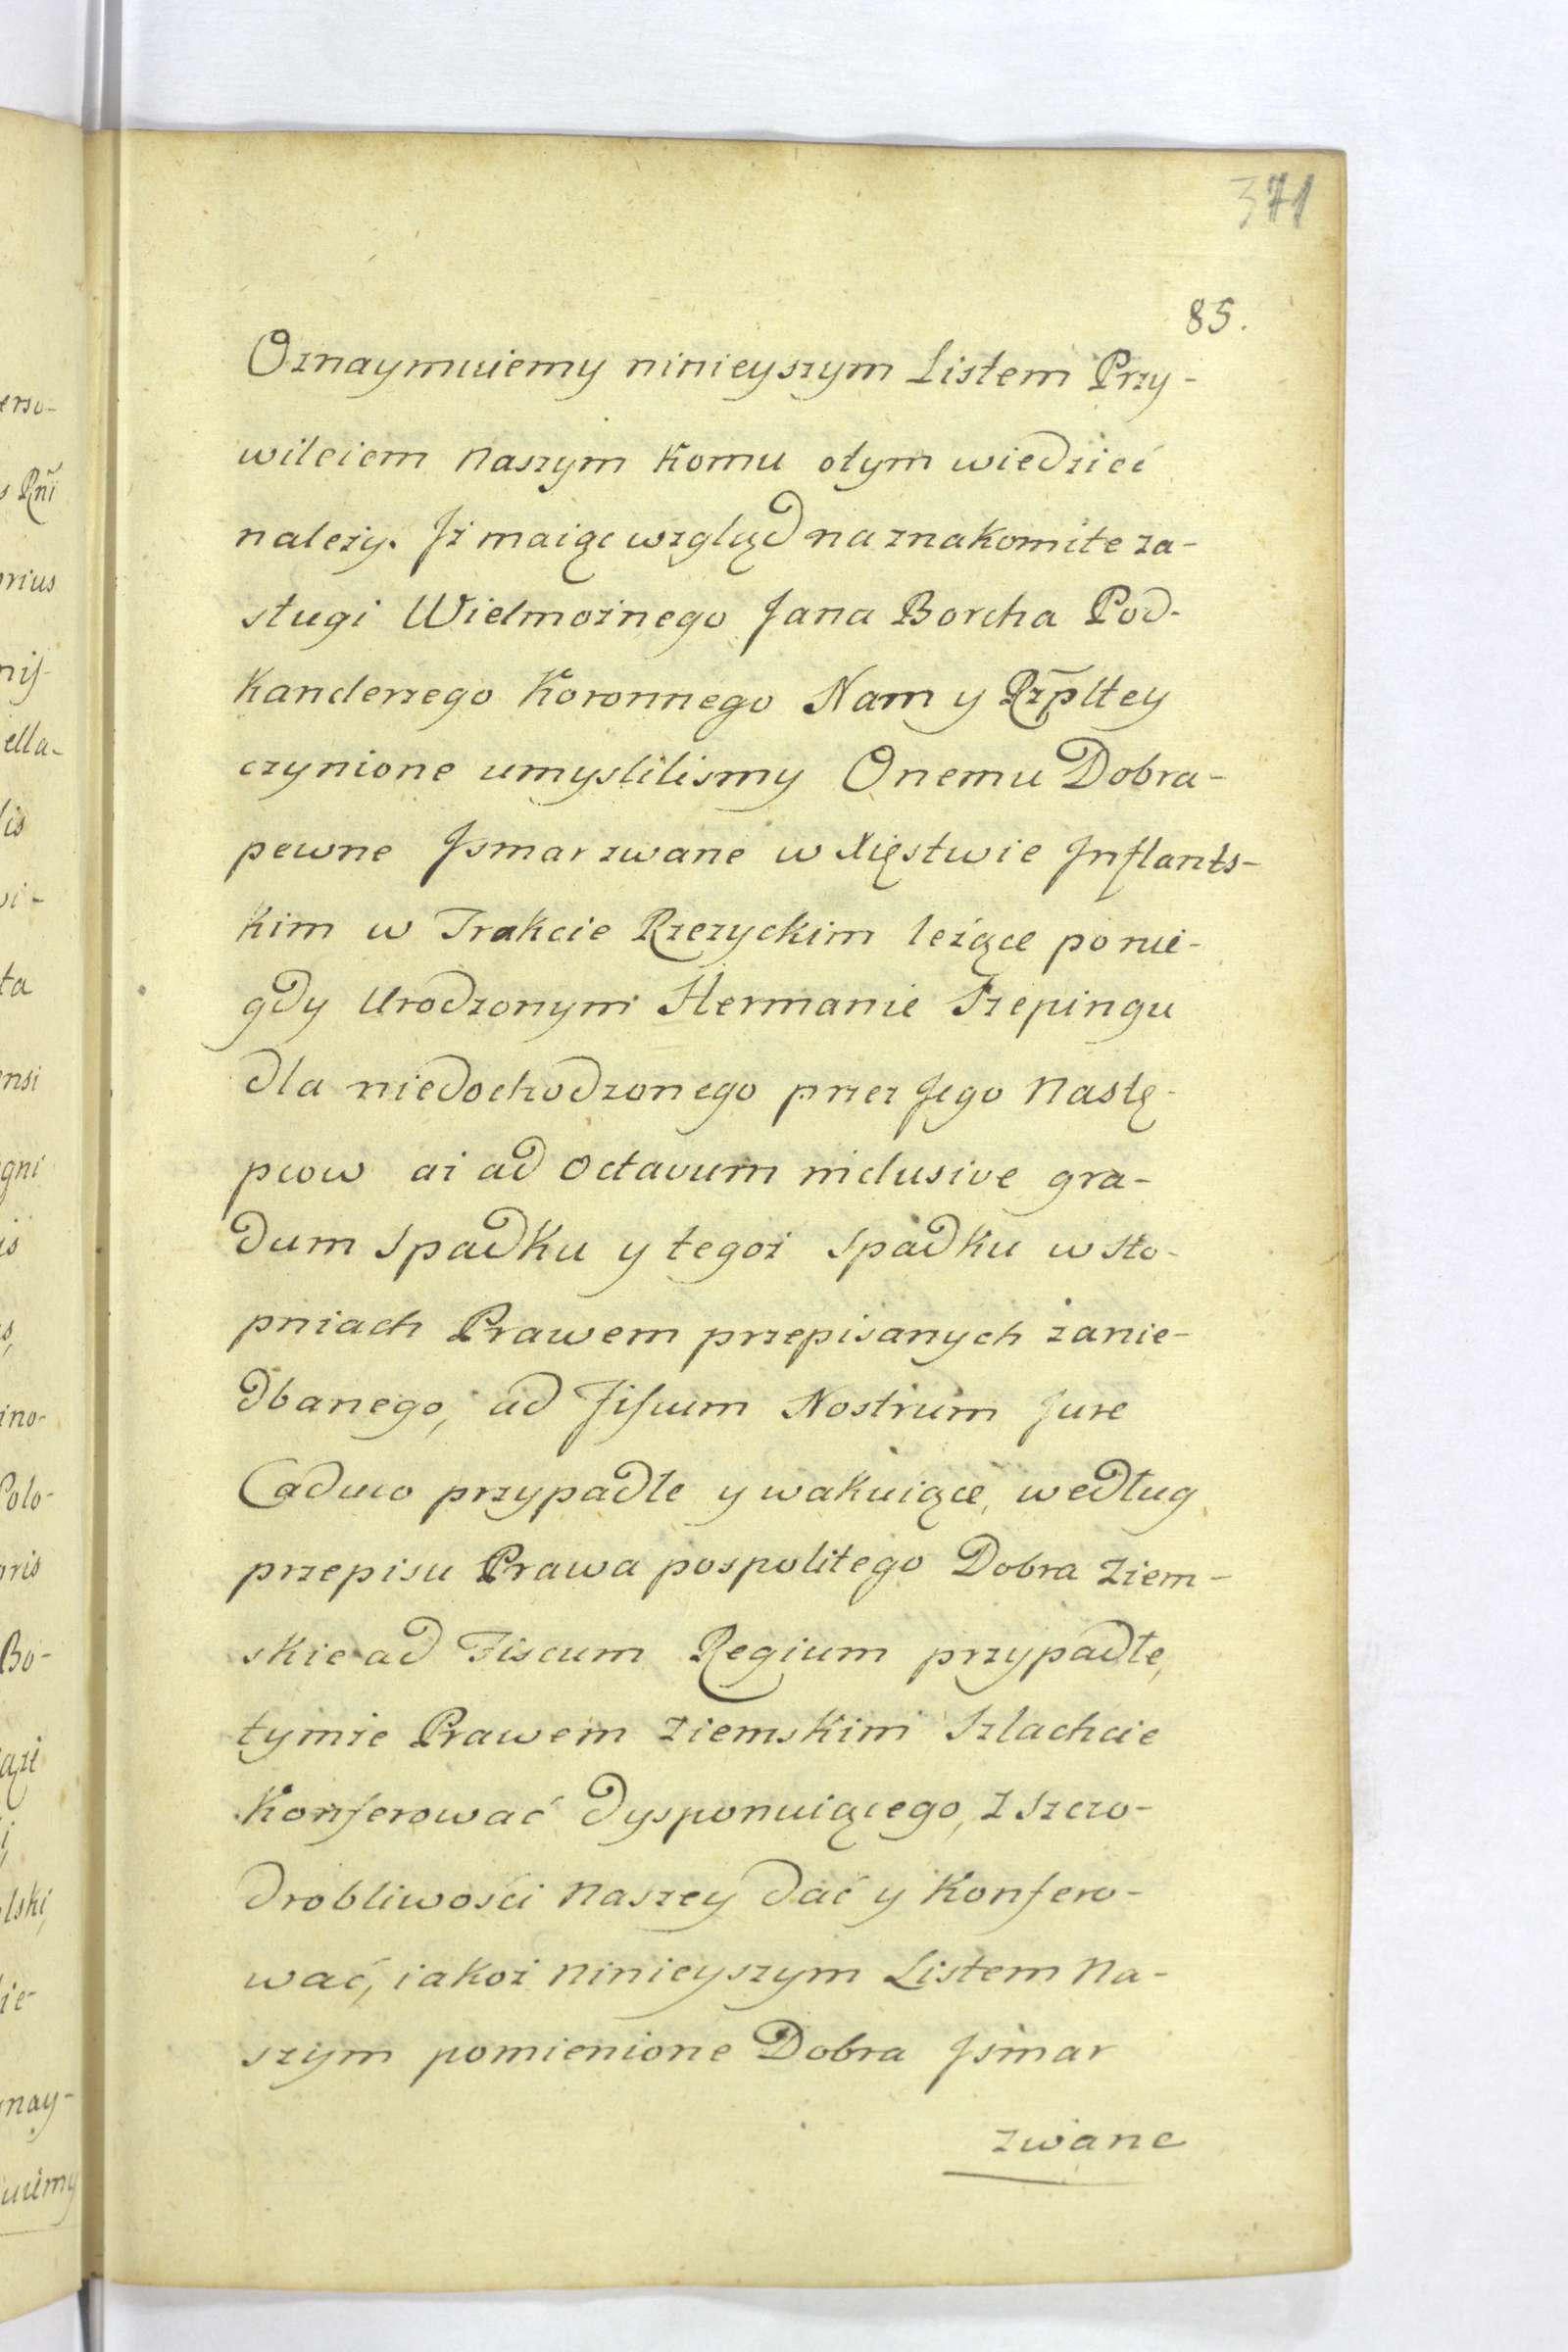 371
85.
Oznaymuiemy ninieyszym Listem Przy-
wileiem naszym komu otym wiedzieć
należy. Jż maiąc wzgląd na znakomite za-
sługi Wielmożnego Jana Borcha Pod-
kanclerzego Koronnego Nam y Rzpltey
czynione umyslilismy Onemu Dobra-
pewne Jsmar zwane w Xięstwie Jnflants-
kim w Trakcie Rzezyckim leżące po nie-
gdy Urodzonym Hermanie Szepingu
dla niedochodzonego przez Jego Nastę-
pcow aż ad Octavum inclusive gra-
dum Spadku y tegoż Spadku w sto-
pniach Prawem przepisanych zanie-
dbanego, ad Fiscum Nostrum Jure
Caduco przypadłe y wakuiące, według
przepisu Prawa pospolitego Dobra Ziem-
skie ad Fiscum Regium przypadłe,
tymże Prawem Ziemskim Szlachcie
Konferować dysponuiącego, z szczo-
drobliwości Naszey dać y Konfero-
wać, iakoż ninieyszym Listem Na-
szym pomienione Dobra Jsmar
zwane
erso-
s Rni
orius
nis-
ella-
lis
vi-
ta
ensi
gni
is
s,
ino-
Polo-
oris
Bo-
ązi
i,
lski,
ie-
ynay-
uiemy